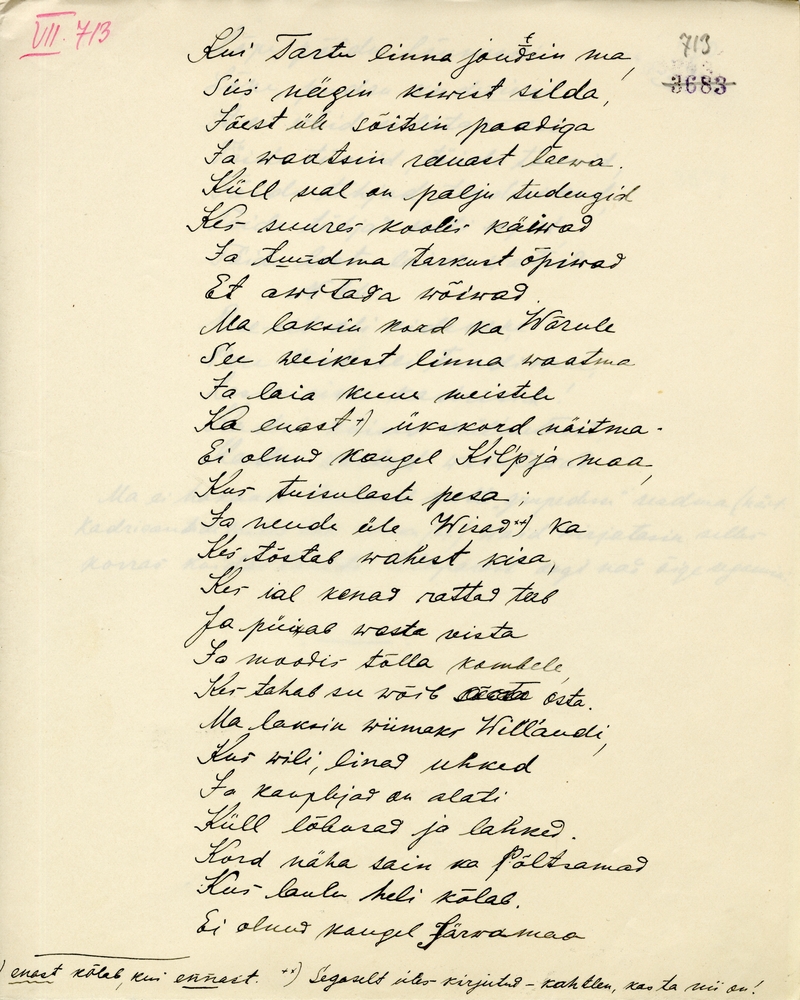 VII 713
713
3683
Kui Tartu linna jõudsin ma,
Siis nägin kiwist silda,
Jõest üle sõitsin paadiga
Ja waatsin rauast laewa.
Küll seal on palju tudengid
Kes suures koolis käiwad
Ja tuudma tarkust õpiwad
Et awitada wõiwad.
Ma laksin kord ka Wõrule
See weikest linna waatma
Ja laia kuue meistele
Ka enast +) ükskord näitma.
Ei olnud kaugel Kilpja maa,
Kus tuisulaste pesa;
Ja nende üle Wisad ++) ka
Kes tõstab wahest kisa,
Kes ial kenad rattad teeb
Ja püiab wasta reista
Ja moodis tõlla kombele,
Kes tahab see wõib osta.
Ma laksin wiimaks Willandi,
Kus wili, linad uhked
Ja kauplejad on alati
Küll lõbusad ja lahked.
Kord näha sain ka Põltsamad
Kus laulu heli kõlab.
Ei olnud kaugel Järwamaa
) enast kõlab, kui ennast. ++) Segaselt üles-kirjutud - kahtlen, kas ta nii on!